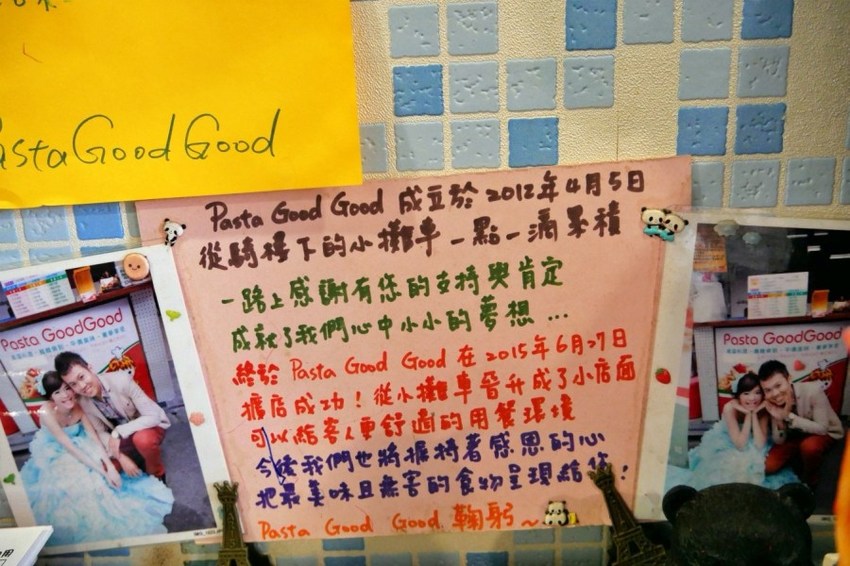 Pasta Good Good
Pasta Good Good 成立於 2012年4月5日
從騎樓下的小攤車一點一滴累積
一路上感謝有您的支持與肯定
成就了我們心中小小的夢想...
終於 Pasta Good Good 在 2015年6月27日
擴店成功！從小攤車晉升成了小店面
可以給客人更舒適的用餐環境
今後我們也將握持著感恩的心
把最美味且無害的食物呈現給你！
Pasta Good Good 鞠躬~
Pasta GoodGood
Pasta GoodGood